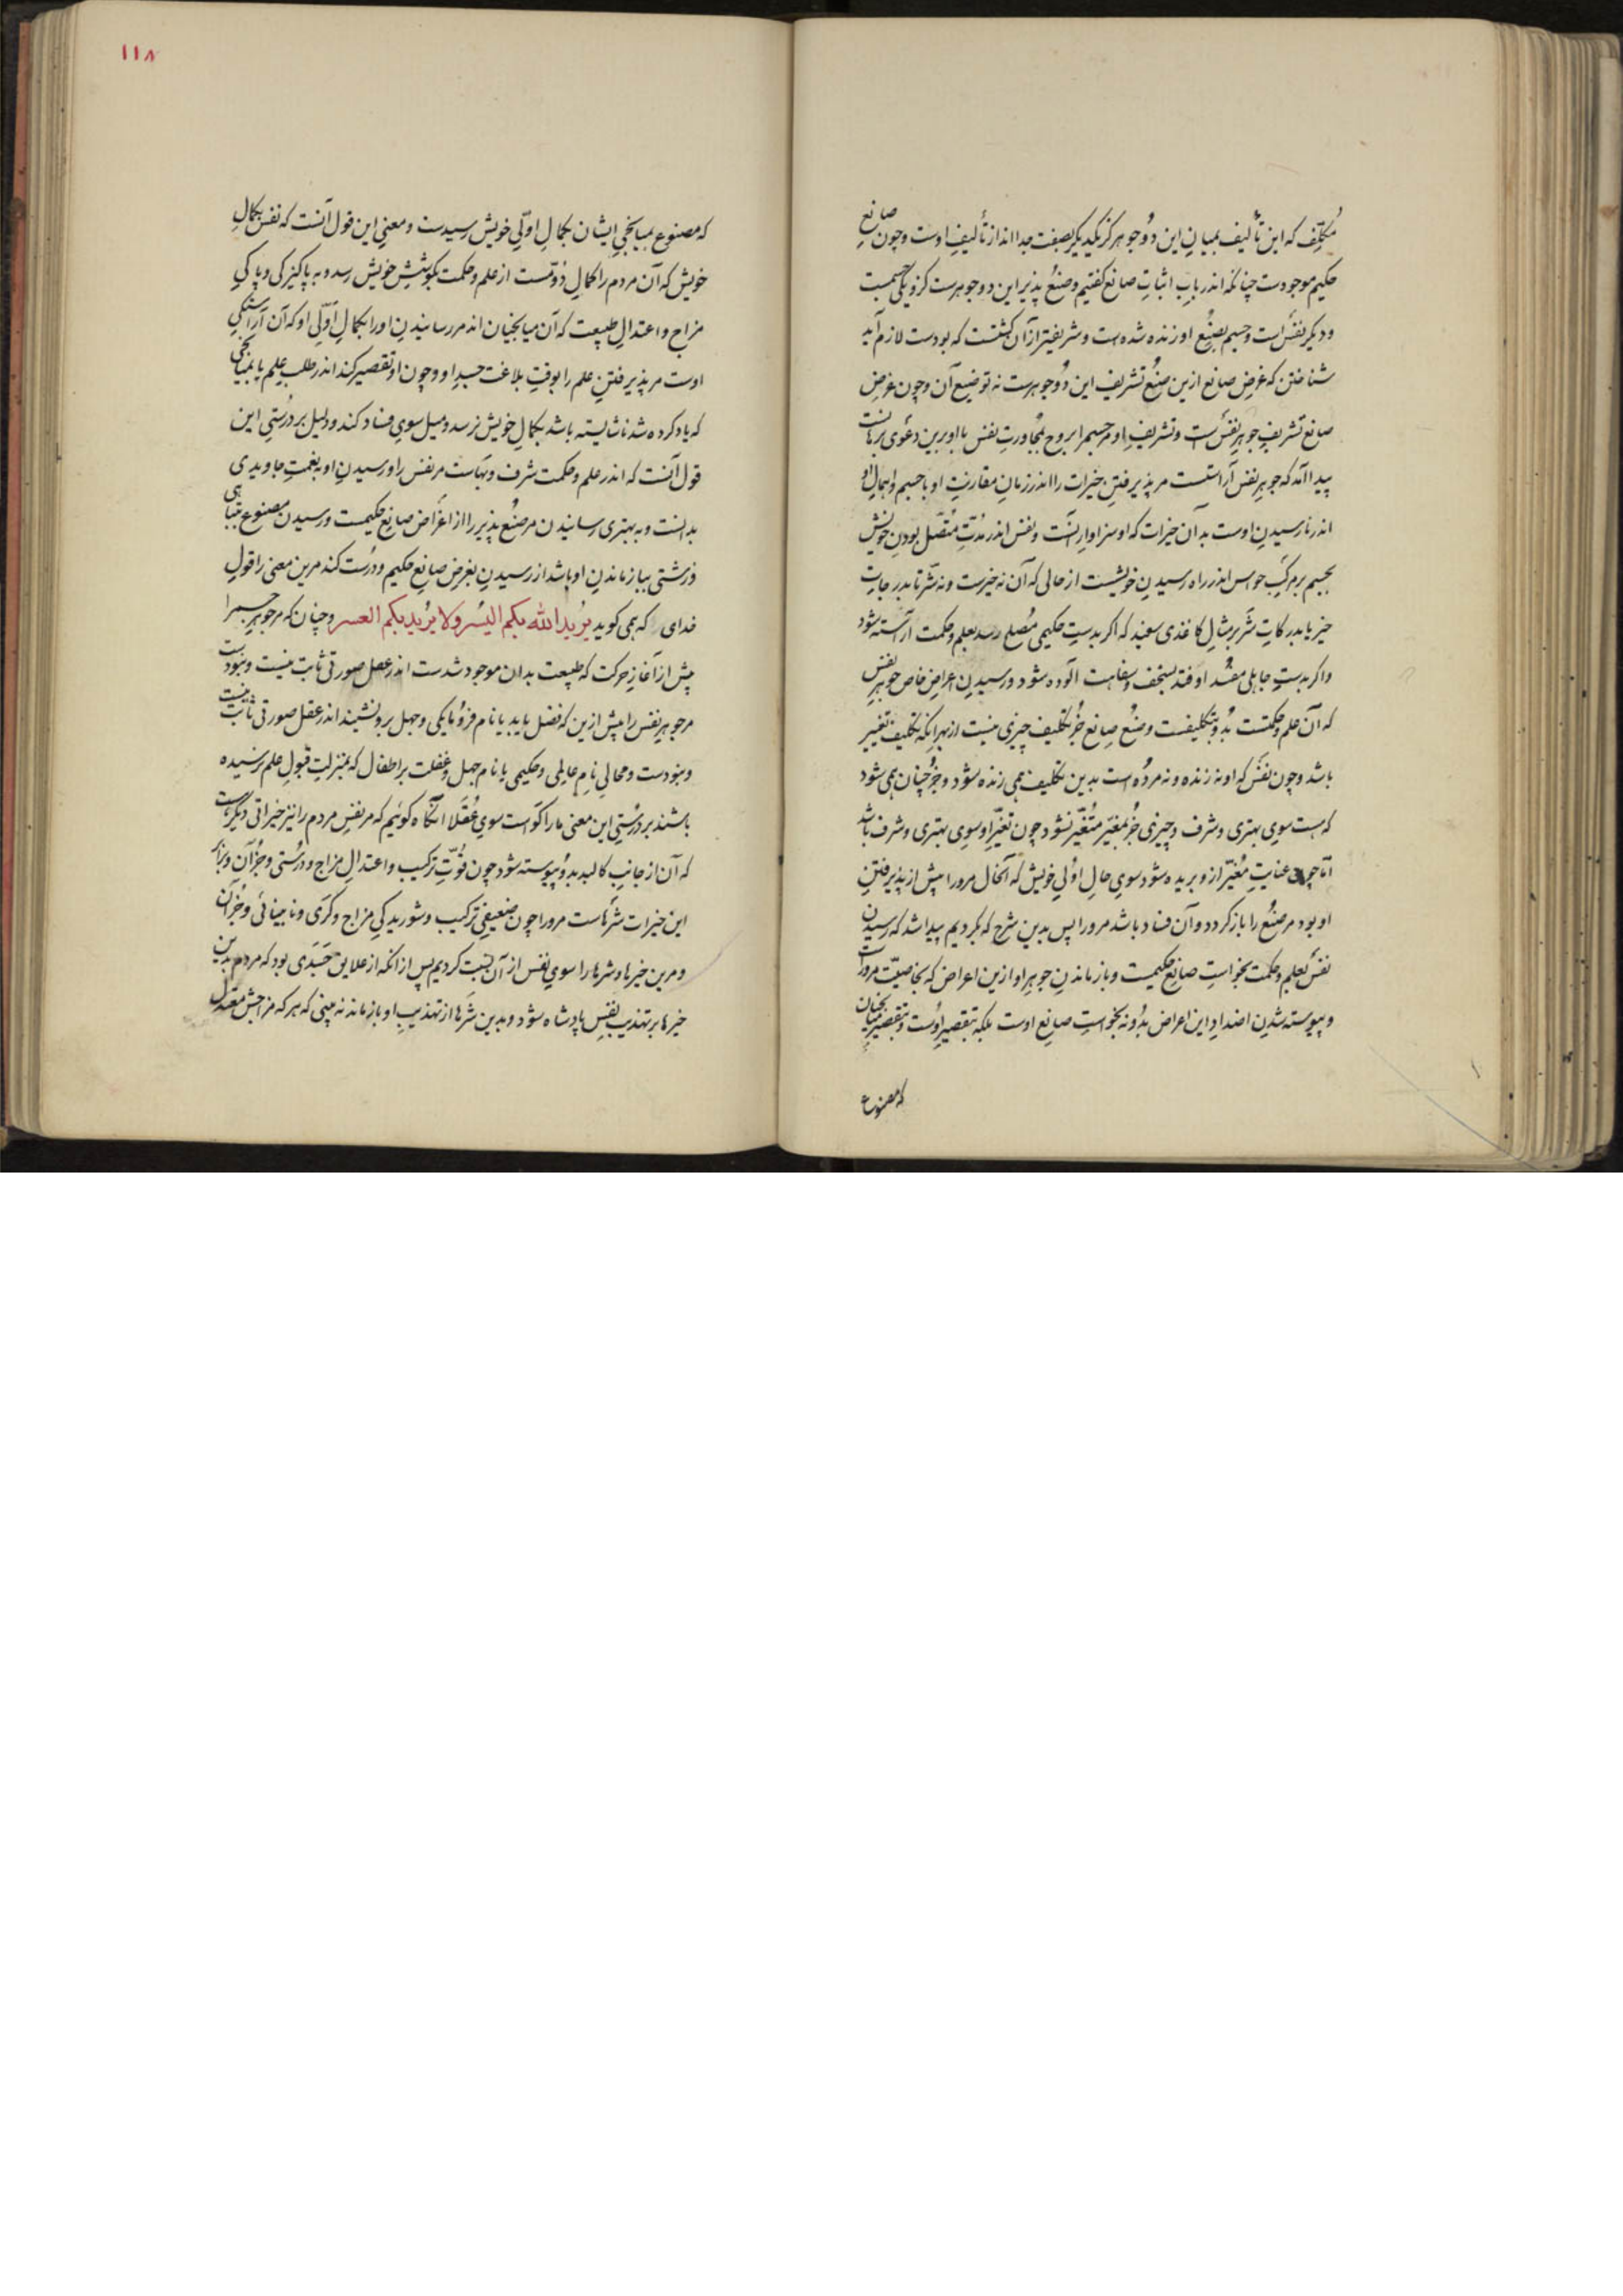 مُکلِّف که این تألیف بمیانِ این دو جوهر کز یکدیکر بصفت جدا اند از تألیفِ اوست وچون صانعِ
حکیم موجودست چنانکه اندر بابِ اثباتِ صانع کفتیم و صنع پذیر این دو جوهرست کزو یکی جسمست
و دیکر نفس است و جسم بصنع او زنده شده است و شریفتر از آن کشتست که بودست لازم آید
شناختن که غرضِ صانع ازین صُنع تشریف این دو جوهرست نه توضیع آن وچون غرضِ
صانع تشریفِ جوهرِ نفس است و تشریفِ او مر جسم را بروح بمجاورتِ نفس با او برین دعوی برهانست
پیدا آمد که جوهرِ نفس آراستست مر پذیرفتنِ خیرات را اندر زمانِ مقارنتِ او با جسم و اهمالِ او
اندر نارسیدنِ اوست بدآن خیرات که او سزاوارِ آنست و نفس اندر مدّتِ متّصل بودنِ خویش
بجسم بر مرکبِ حواس اندر راهِ رسیدنِ خویشست از حالی که آن نه خیرست و نه شرّ تا بدرجاتِ
خیر یا بدرکاتِ شرّ بر مثالِ کاغذی سفید که اکر بدستِ حکیمی مُصلح رسد بعلم و حکمت آراسته شود
و اکر بدستِ جاهلی مفسد اوفتد بسخف و سفاهت آلوده شود و رسیدنِ اعراضِ خاصِ جوهرِ نفس
که آن علم و حکمتست بدو بتکلیفست و صُنعِ صانع جُز تکلیف چیزی نیست از بهر آنکه تکلیف تغییر
باشد وچون نفس که او نه زنده و نه مرده است بدین تکلیف همی زنده شود و جز چنان همی شود
که هست سوی بهتری و شرف و چیزی جُز بمغیّر متغیّر نشود چون تغیّرِ او سوی بهتری و شرف باشد
امّا چون عنایتِ مُغیّر ازو بریده شود سوی حالِ اوّلیِ خویش که آنحال مرورا پیش از پذیرفتنِ
او بود مر صُنع را باز کردد و آن فساد باشد مرورا پس بدین شرح که بکردیم پیدا شد که رسیدنِ
نفس بعلم و حکمت بخواستِ صانعِ حکیمست و باز ماندنِ جوهرِ او ازین اعراض که بخاصیّت مروراست
و پیوسته شدنِ اضدادِ این اعراض بدو نه بخواستِ صانعِ اوست بلکه بتقصیرِ اوست و بتقصیرِ میانجیان
که مصنوع
۱۱۸
که مصنوع بمیانجیِ ایشان بکمالِ اوّلیِ خویش رسیدست و معنیِ این قول آنست که نفس بکمالِ
خویش که آن مردم را کمالِ دُوّمست از علم و حکمت بکوششِ خویش رسد و به پاکیزکی و پاکیِ
مزاج و اعتدالِ طبیعت که آن میانجیان اند مر رسانیدنِ او را بکمالِ اوّلیِ او که آن آراستکیِ
اوست مر پذیرفتنِ علم را بوقتِ بلاغت جسدِ او وچون او تقصیر کند اندر طلبِ علم یا میانجی
که یاد کرده شد ناشایسته باشد بکمالِ خویش نرسد و میل سوی فساد کند و دلیل بر درستیِ این
قول آنست که اندر علم و حکمت شرف و بهاست مر نفس را و رسیدنِ او بنعمتِ جاویدی
بدانست و به بهتری رسانیدن مر صُنع پذیر را از اغراضِ صانعِ حکیمست و رسیدن مصنوع بتباهی
و زشتی بباز ماندنِ او باشد از رسیدنِ بغرضِ صانعِ حکیم و درست کند مرین معنی را قولِ
خدای که همی کوید یُریدُ الله بکم الیُسر ولا یُرید بکم العسر و چنان که مر جوهرِ جسم را
پیش از آغازِ حرکت که طبیعت بدان موجود شدست اندر عقل صورتی ثابت نیست و نبودست
مر جوهرِ نفس را پیش ازین که فضل یابد یا نام فرومایکی و جهل برو نشیند اندر عقل صورتی ثابت نیست
و نبودست و محالیِ نامِ عالمی و حکیمی یا نام جهل و غفلت بر اطفال که بمنزلتِ قبولِ علم نرسیده
باشند بر درستیِ این معنی ما را کواست سوی عُقلا آنکاه کوئیم که مر نفسِ مردم را نیز خیراتی دیکرست
که آن از جانبِ کالبد بدو پیوسته شود چون قوّتِ ترکیب و اعتدالِ مزاج و درستی و جز آن و برابر
این خیرات شرّهاست مرورا چون ضعیفیِ ترکیب و شوریدکیِ مزاج و کرّی و نابینائی و جز آن
و مرین خیرها و شرها را سوی نفس از آن نسبت کردیم پس از آنکه از علایق جسدی بود که مردم بدین
خیرها بر تهذیبِ نفس پادشاه شود و بدین شرّها از تهذیبِ او باز ماند نه بینی که هر که مزاجش معتدل